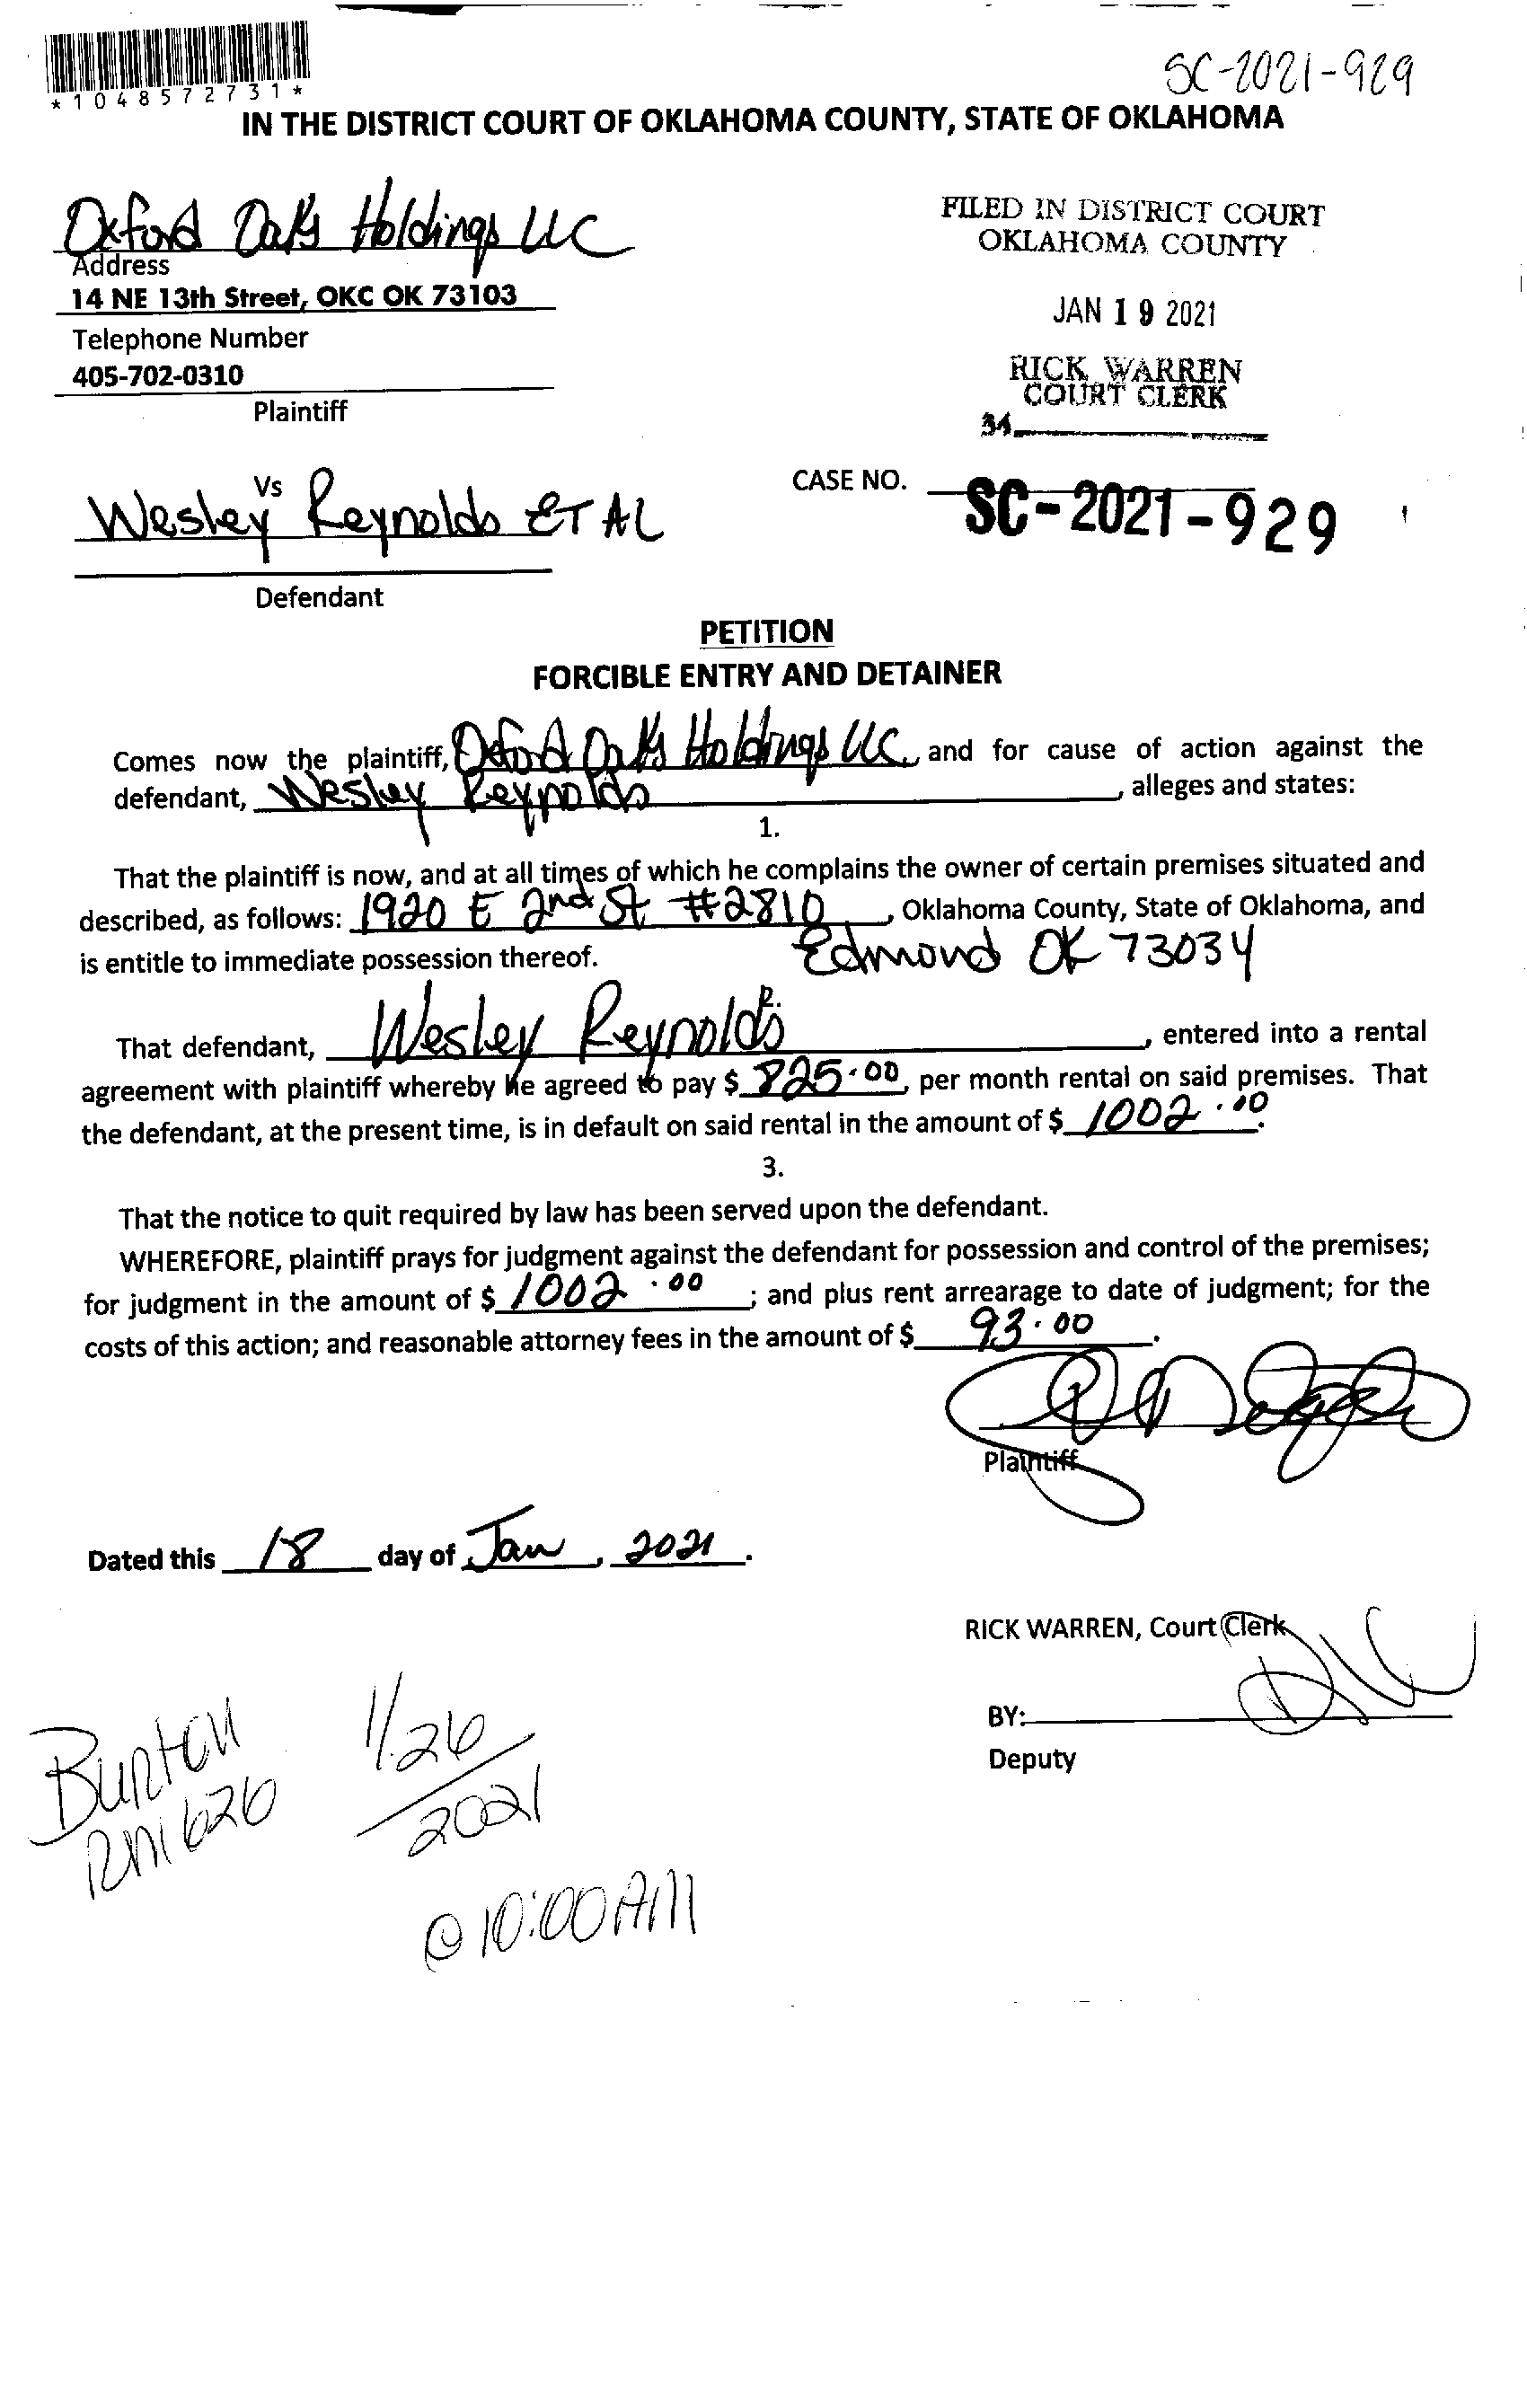 *1048572731*
SC-2021-929
IN THE DISTRICT COURT OF OKLAHOMA COUNTY, STATE OF OKLAHOMA
Oxford Oaks Holdings LLC
Address
14 NE 13th Street, OKC OK 73103
Telephone Number
405-702-0310
Plaintiff
FILED IN DISTRICT COURT
OKLAHOMA COUNTY
JAN 19 2021
RICK WARREN
COURT CLERK
34
Vs
Wesley Reynolds ET AL
Defendant
CASE NO. SC-2021-929
PETITION
FORCIBLE ENTRY AND DETAINER
Comes now the plaintiff, Oxford Oaks Holdings LLC, and for cause of action against the
defendant, Wesley Reynolds, alleges and states:
1.
That the plaintiff is now, and at all times of which he complains the owner of certain premises situated and
described, as follows: 1920 E 2nd St #2810, Oklahoma County, State of Oklahoma, and
is entitle to immediate possession thereof. Edmond OK 73034
2.
That defendant, Wesley Reynolds, entered into a rental
agreement with plaintiff whereby he agreed to pay $ 825.00, per month rental on said premises. That
the defendant, at the present time, is in default on said rental in the amount of $ 1002.00.
3.
That the notice to quit required by law has been served upon the defendant.
WHEREFORE, plaintiff prays for judgment against the defendant for possession and control of the premises;
for judgment in the amount of $ 1002.00; and plus rent arrearage to date of judgment; for the
costs of this action; and reasonable attorney fees in the amount of $ 93.00.
Plaintiff
Dated this 18 day of Jan, 2021.
RICK WARREN, Court Clerk
BY:
Deputy
Burton
RM 626
1/26
2021
@ 10:00 AM